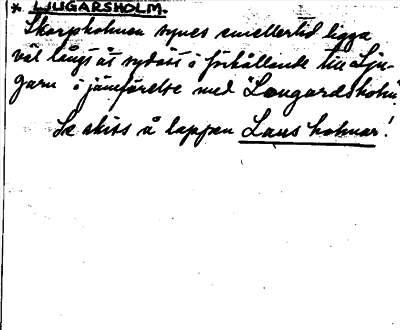 * LJUGARSHOLM.
Skarpholmen synes emellertid ligga
väl långt åt sydost i förhållande till Lju-
garn i jämförelse med "Lougardsholm".
Se skiss å lappen Laus holmar!